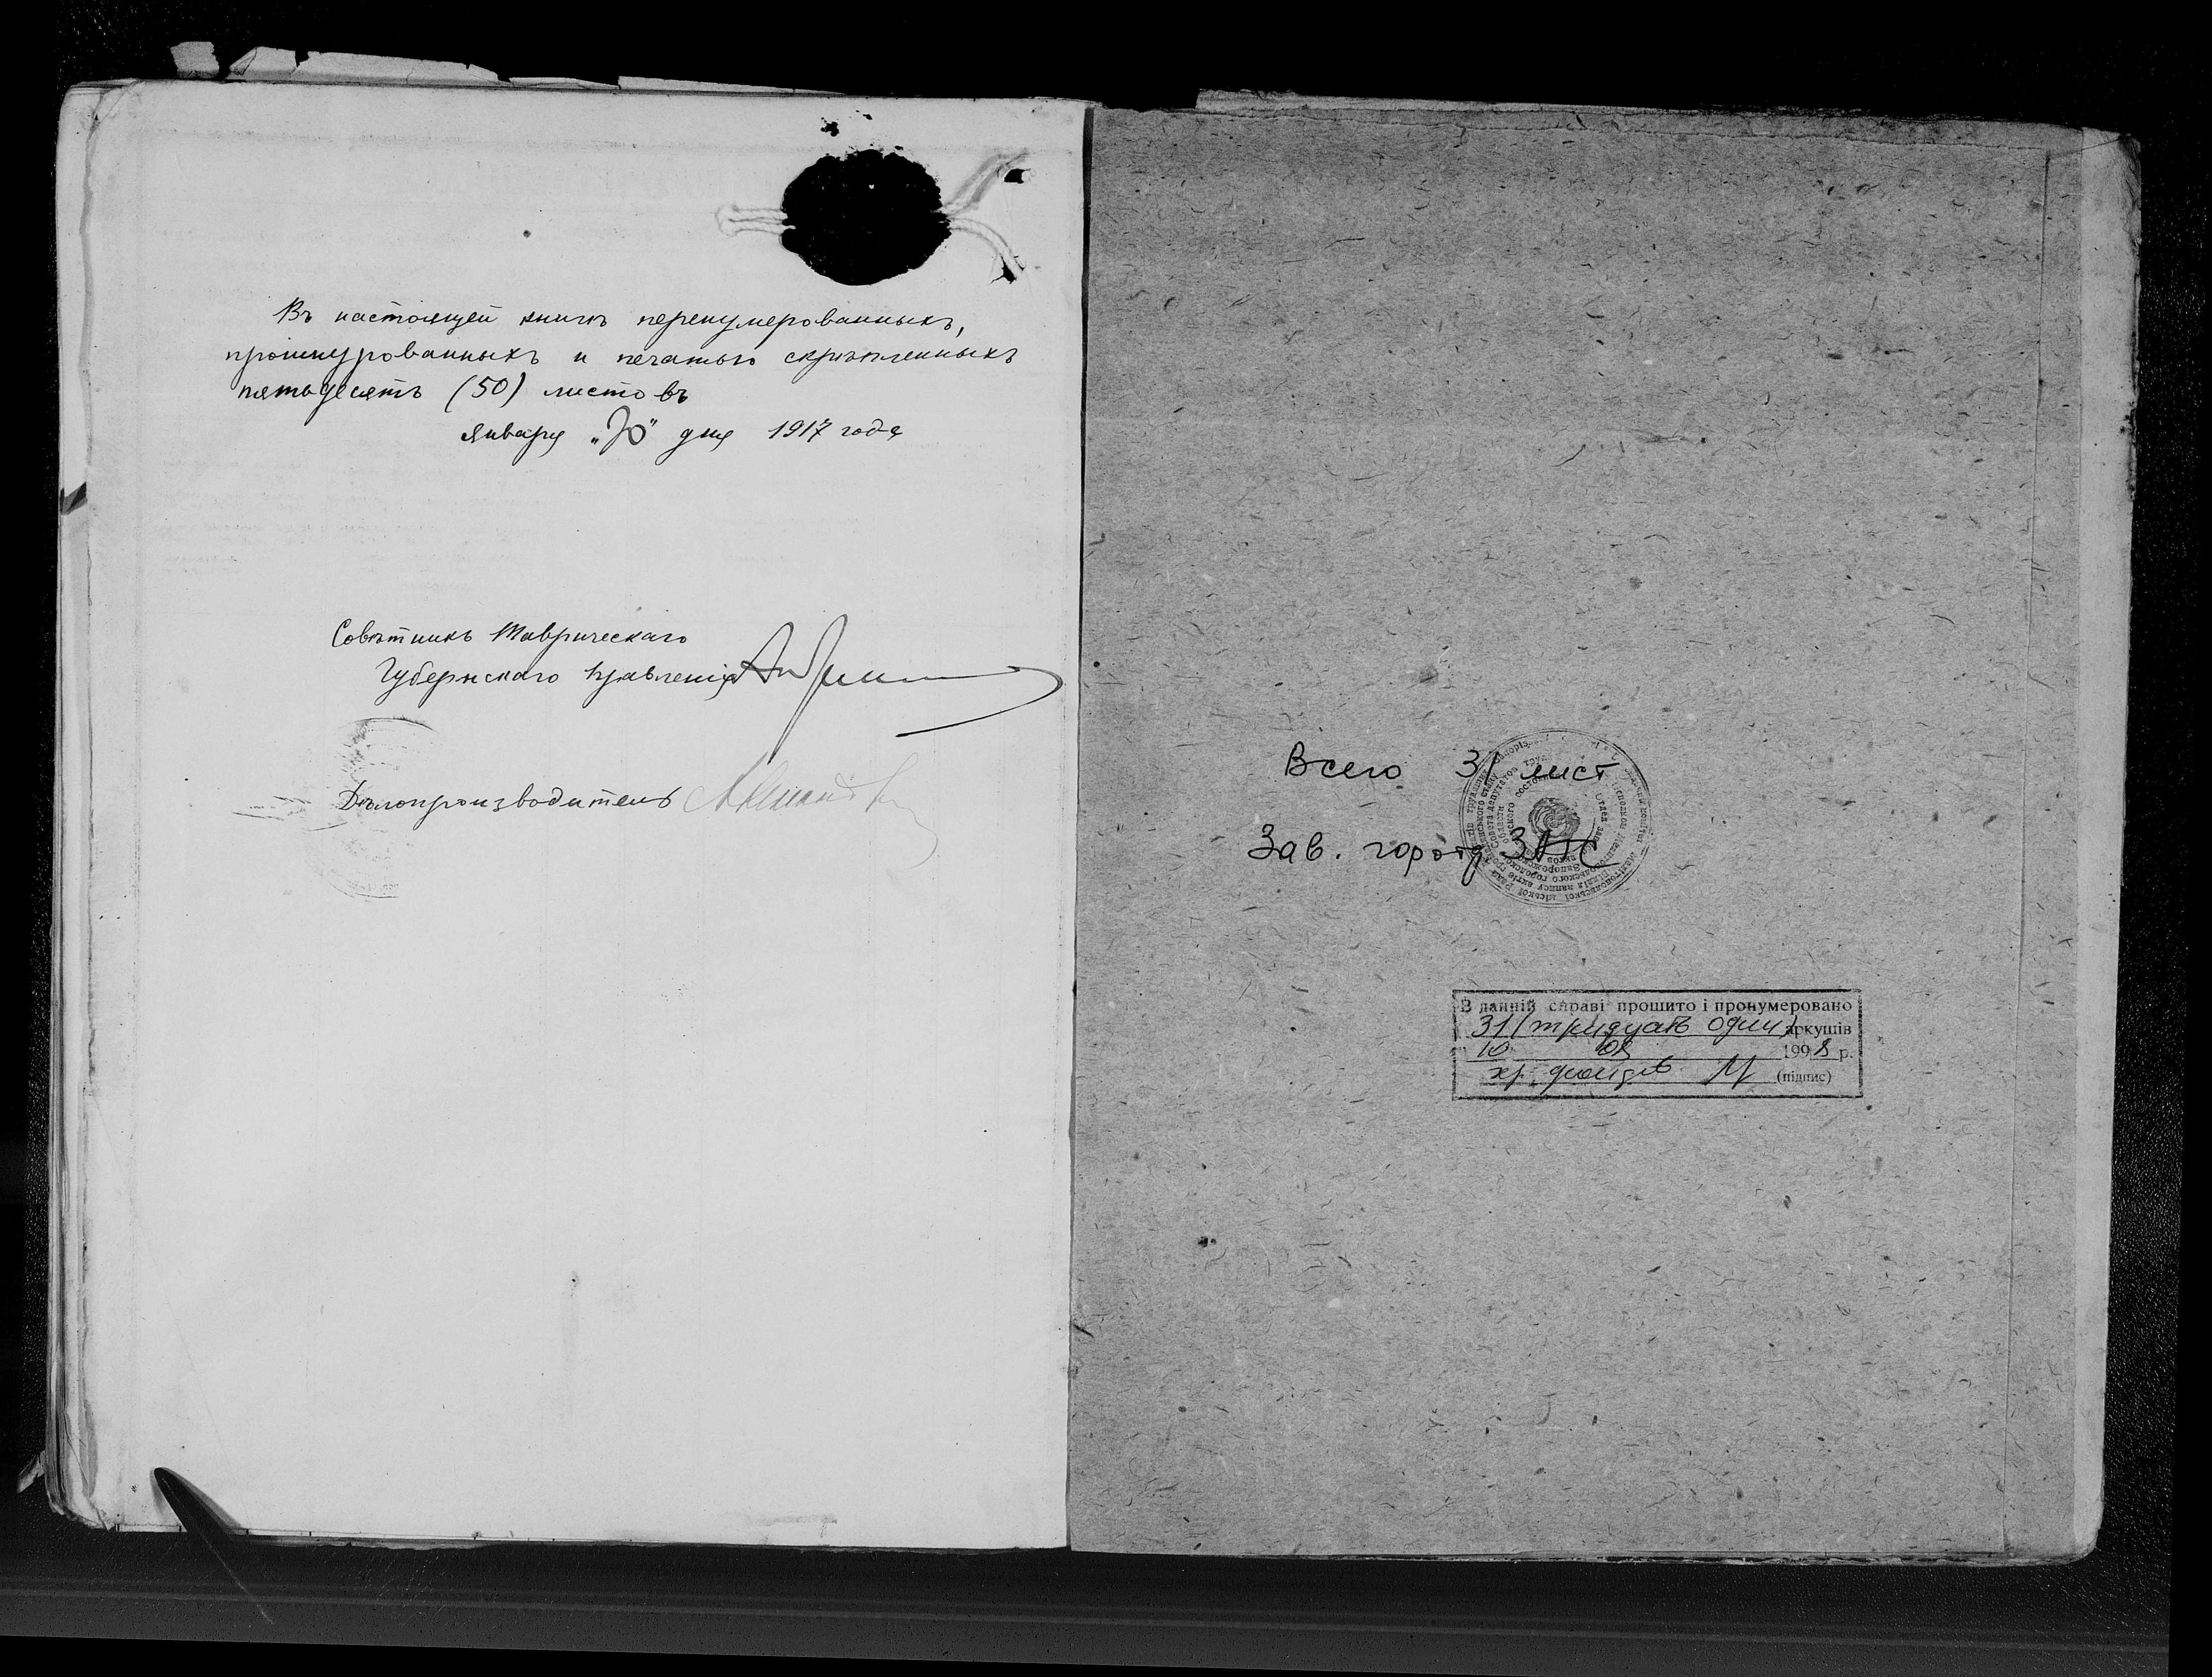 Въ настоящей книгѣ перенумерованныхъ,
прошнурованныхъ и печатью скрѣпленныхъ
пятьдесятъ (50) листовъ
Января „30" дня 1917 года
Совѣтникъ Таврическаго
Губернскаго Правленія
Дѣлопроизводитель
Всего 31 лист
Зав. горотд ЗАГС
В данній справі прошито і пронумеровано
31 (тридцать один) аркушів
10 08 1998 р.
хр. фондів (підпис)